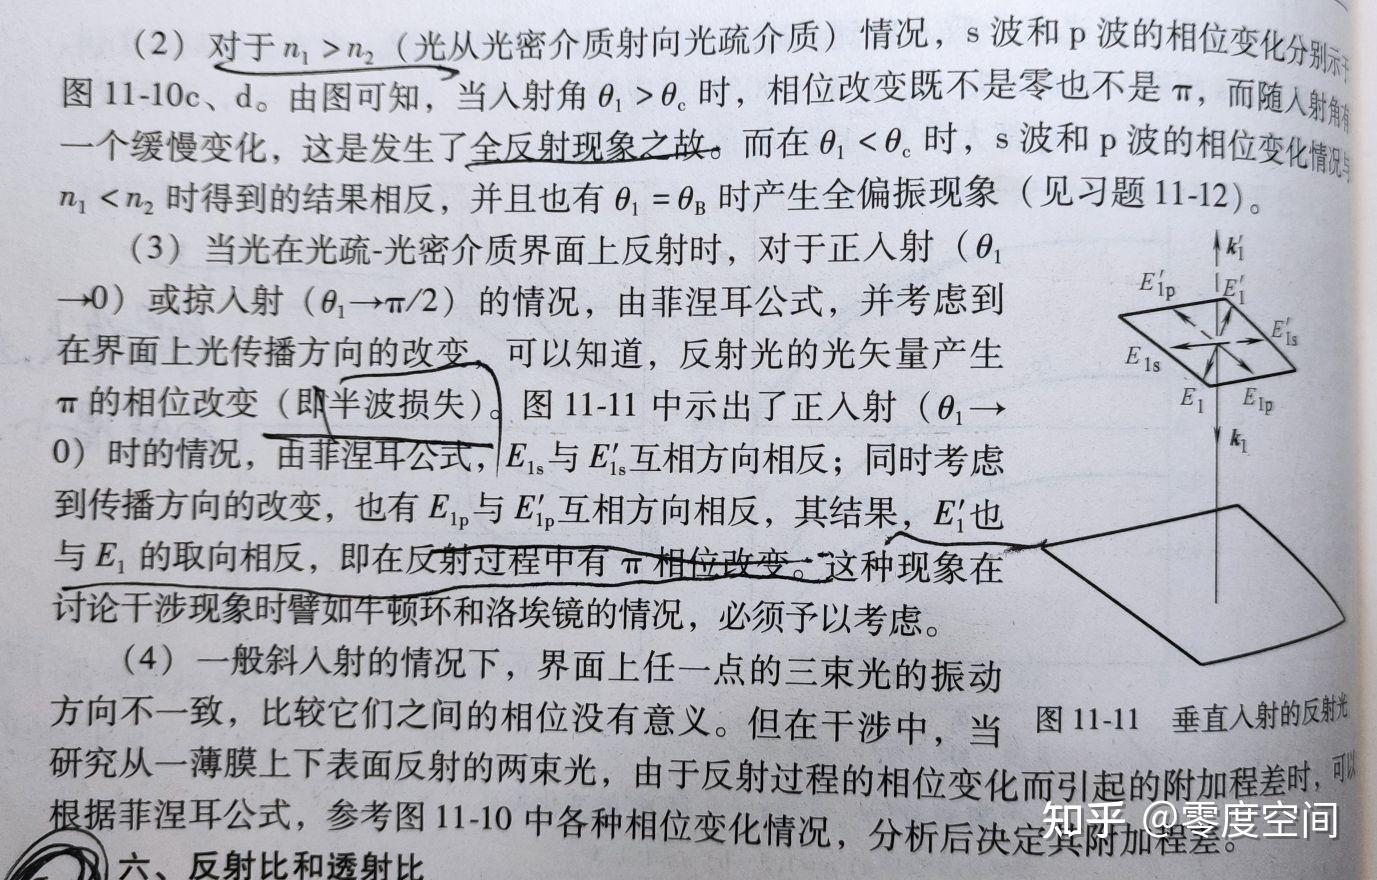 （2）对于 n₁ > n₂（光从光密介质射向光疏介质）情况，s 波和 p 波的相位变化分别示于
图 11-10c、d。由图可知，当入射角 θ₁ > θc 时，相位改变既不是零也不是 π，而随入射角有
一个缓慢变化，这是发生了全反射现象之故。而在 θ₁ < θc 时，s 波和 p 波的相位变化情况与
n₁ < n₂ 时得到的结果相反，并且也有 θ₁ = θB 时产生全偏振现象（见习题 11-12）。
（3）当光在光疏-光密介质界面上反射时，对于正入射（θ₁
→0）或掠入射（θ₁→π/2）的情况，由菲涅耳公式，并考虑到
在界面上光传播方向的改变，可以知道，反射光的光矢量产生
π 的相位改变（即半波损失）。图 11-11 中示出了正入射（θ₁→
0）时的情况，由菲涅耳公式，E₁s 与 E′₁s 互相方向相反；同时考虑
到传播方向的改变，也有 E₁p 与 E′₁p 互相方向相反，其结果，E′₁ 也
与 E₁ 的取向相反，即在反射过程中有 π 相位改变。这种现象在
讨论干涉现象时譬如牛顿环和洛埃镜的情况，必须予以考虑。
（4）一般斜入射的情况下，界面上任一点的三束光的振动
方向不一致，比较它们之间的相位没有意义。但在干涉中，当
研究从一薄膜上下表面反射的两束光，由于反射过程的相位变化而引起的附加程差时，可以
根据菲涅耳公式，参考图 11-10 中各种相位变化情况，分析后决定其附加程差。
六、反射比和透射比
k′₁
E′₁p
E′₁
E′₁s
E₁s
E₁
E₁p
k₁
图 11-11 垂直入射的反射光
知乎 @零度空间